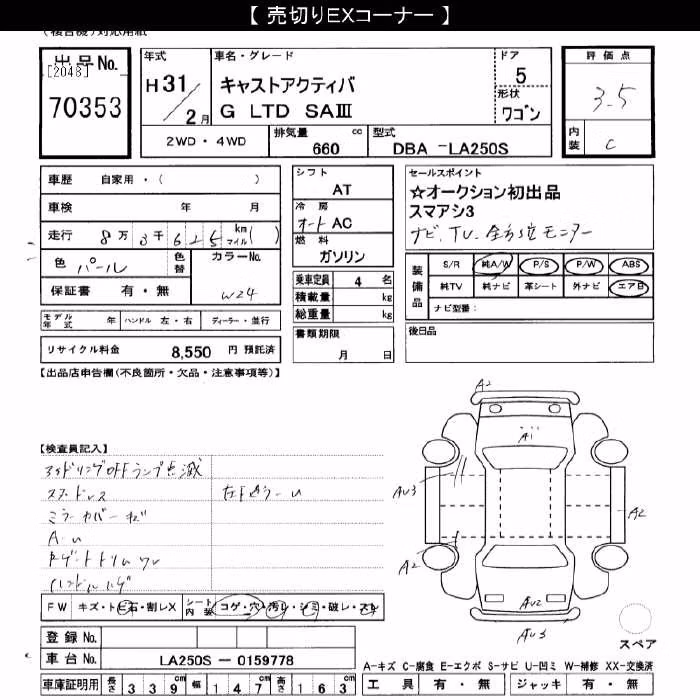 【 売切りEXコーナー 】
出品No.
[2048]
70353
年式
H 31/2月
車名・グレード
キャストアクティバ
G LTD SAⅢ
ドア
5
形状
ワゴン
評価点
3.5
内装
C
2WD・4WD
排気量 660 cc
型式 DBA -LA250S
車歴 自家用・( )
車検 年 月
走行 8万 3千 625 km マイル( )
色 パール
色替
カラーNo.
W24
保証書 有・無
モデル年式 年
ハンドル 左・右
ディーラー・並行
リサイクル料金 8,550 円 預託済
シフト
AT
冷房
オート AC
燃料
ガソリン
乗車定員 4 名
積載量 kg
総重量 kg
書類期限
月 日
セールスポイント
☆オークション初出品
スマアシ3
ナビ、TV、全方位モニター
装備品
S/R 純A/W P/S P/W ABS
純TV 純ナビ 革シート 外ナビ エアB
ナビ型番:
後日品
【出品店申告欄(不良箇所・欠品・注意事項等)】
【検査員記入】
アイドリングOFFランプ点滅
スペアレス
ミラーカバーキズ
A・U
ハンドルハゲ
FW キズ・トビ石・割レX
シート内装 コゲ・穴・汚レ・シミ・破レ・スレ
登録No.
車台No. LA250S − 0159778
車庫証明用 長さ 339 cm 幅 147 cm 高さ 163 cm
A2
A1
AU3
A2
A2
AU2
AU3
スペア
A−キズ C−腐食 E−エクボ S−サビ U−凹ミ W−補修 XX−交換済
工具 有・無 ジャッキ 有・無